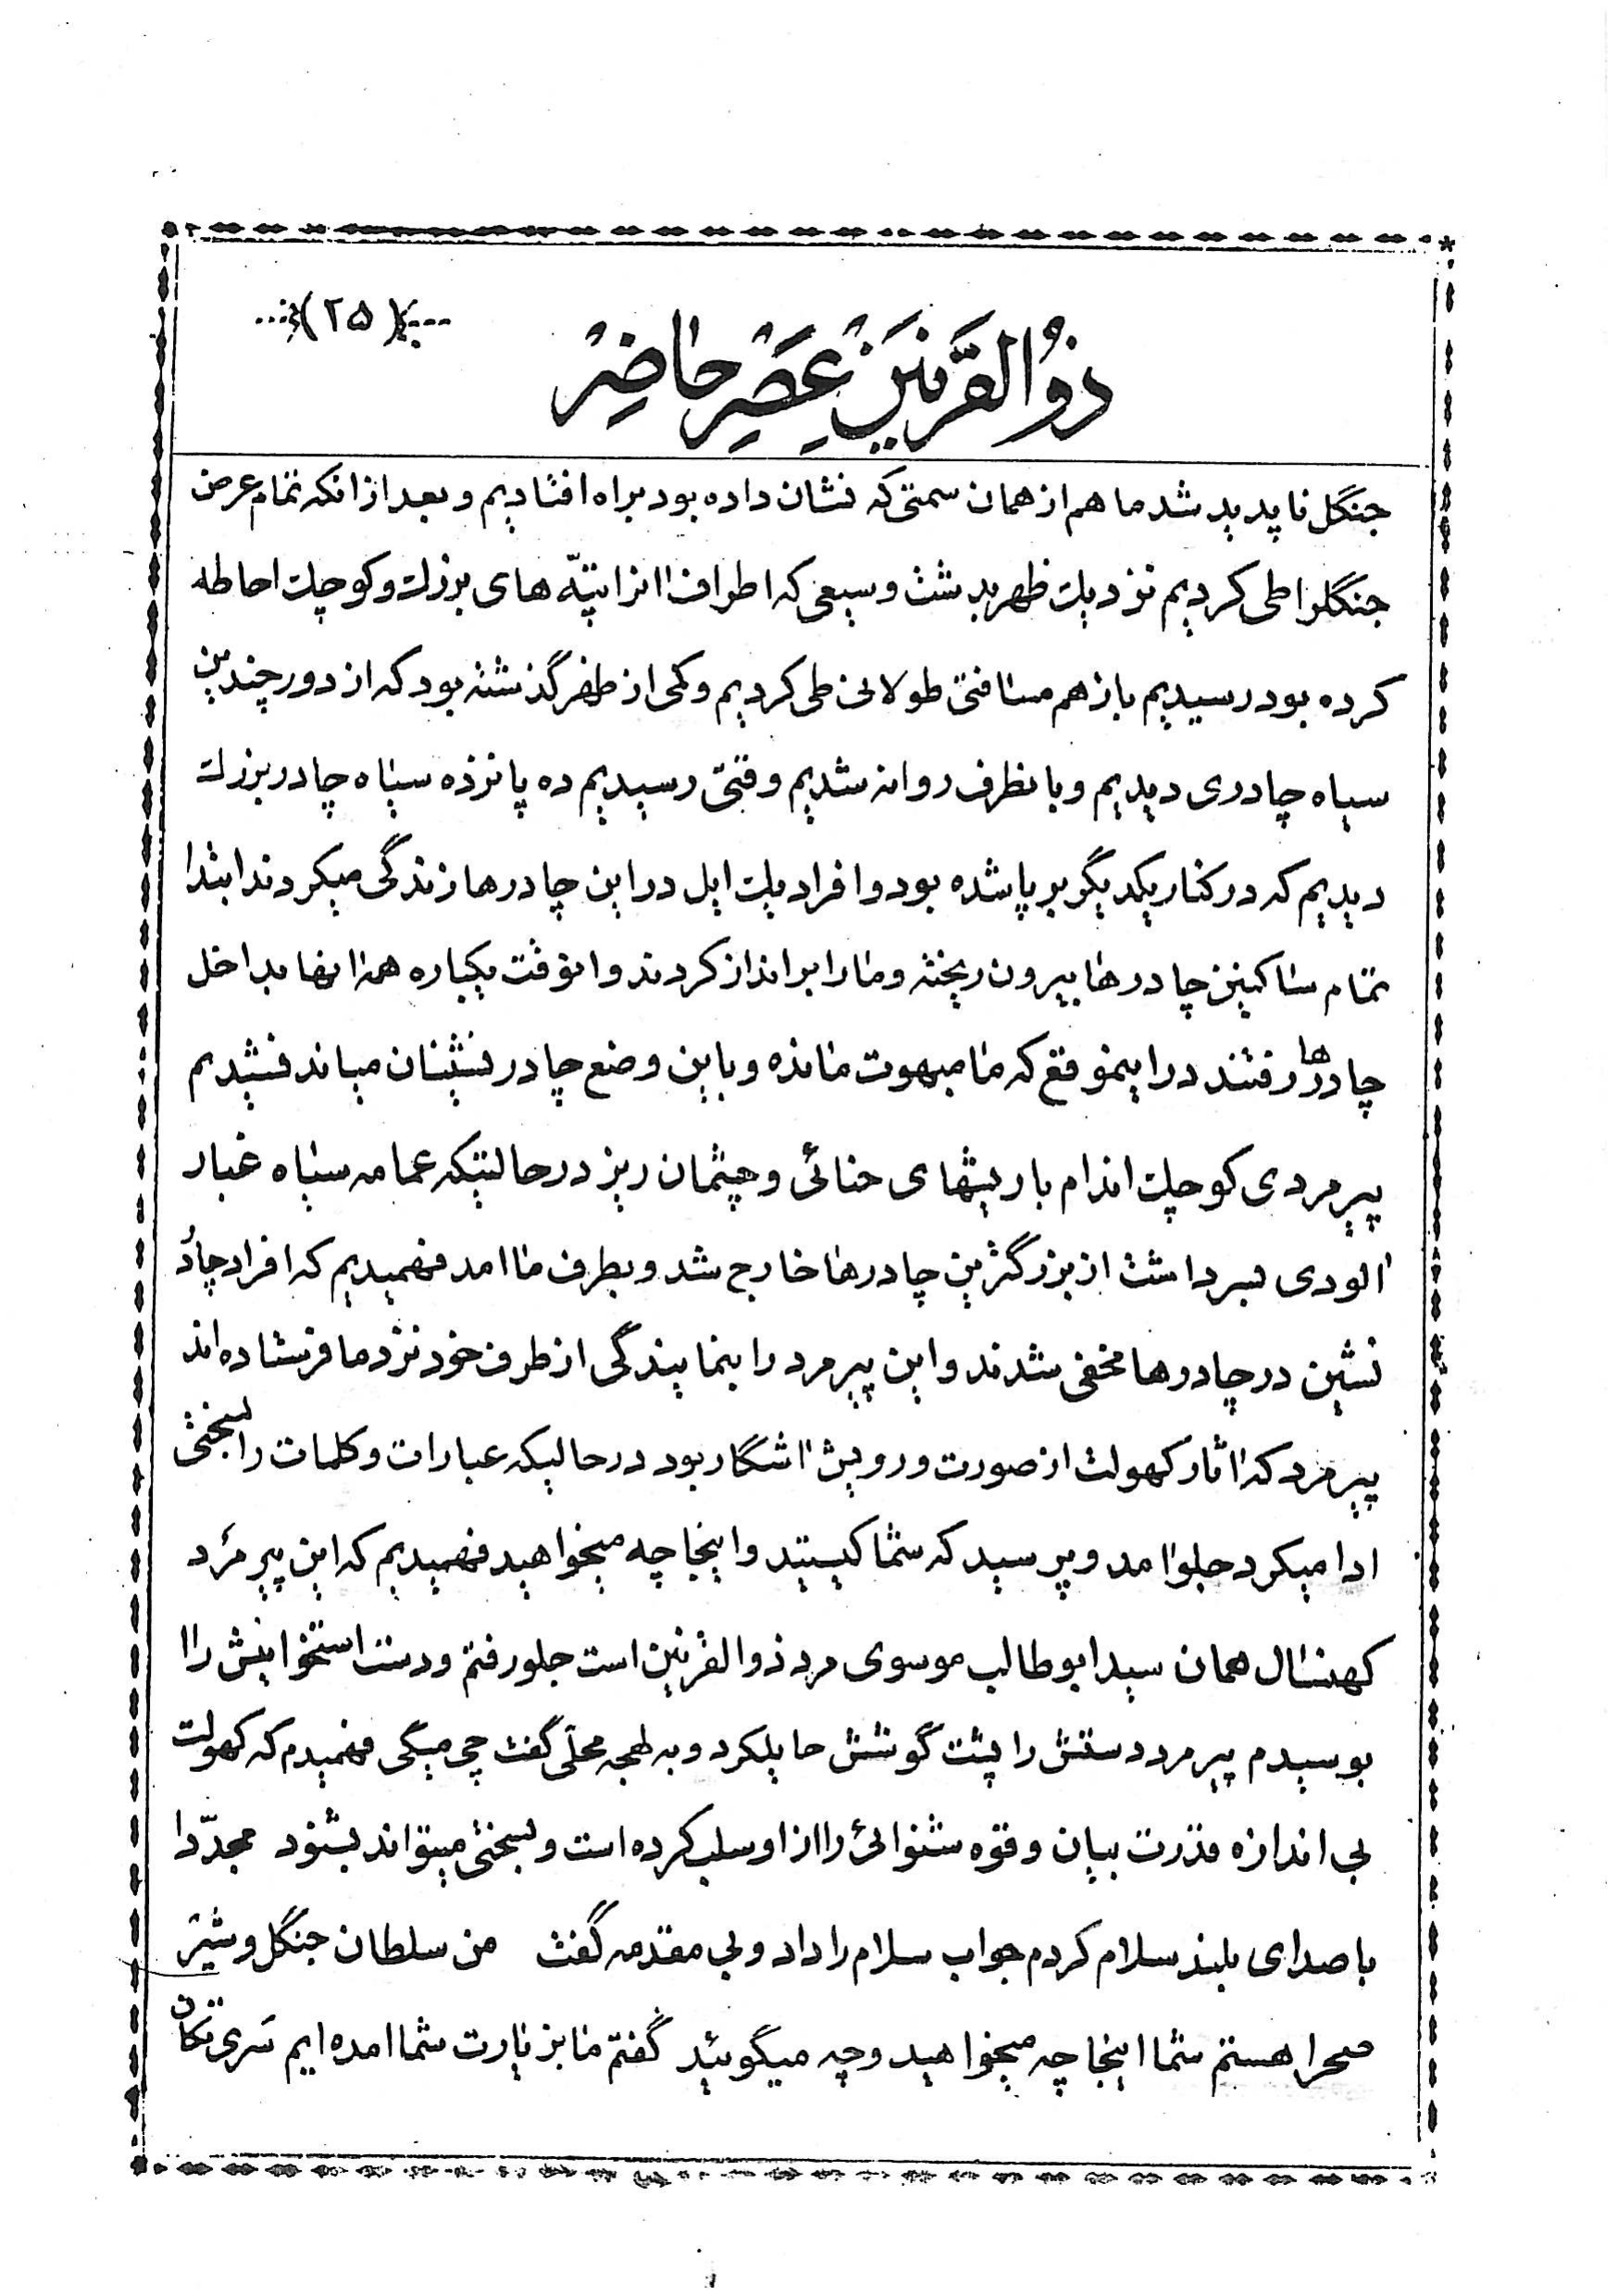 (۲۵)
ذُوالقَرنَین عَصرِ حاضِر
جنگل ناپدید شد ما هم از همان سمتی که نشان داده بود براه افتادیم و بعد از انکه تمام عرض
جنگلرا طی کردیم نزدیک ظهر بدشت وسیعی که اطراف انرا تپّه های بزرک و کوچک احاطه
کرده بود رسیدیم باز هم مسافتی طولانی طی کردیم و کمی از ظهر گذشته بود که از دور چندین
سیاه چادری دیدیم و بانطرف روانه شدیم وقتی رسیدیم ده پانزده سیاه چادر بزرک
دیدیم که در کنار یکدیگر برپا شده بود و افراد یک ایل در این چادرها زندگی میکردند ابتدا
تمام ساکنین چادرها بیرون ریخته و ما را برانداز کردند و انوقت یکباره همه انها بداخل
چادرها رفتند در اینموقع که ما مبهوت مانده و باین وضع چادر نشینان میاندیشیدیم
پیرمردی کوچک اندام با ریشهای حنائی و چشمان ریز در حالتیکه عمامه سیاه غبار
الودی بسر داشت از بزرگترین چادرها خارج شد و بطرف ما امد فهمیدیم که افراد چادر
نشین در چادرها مخفی شدند و این پیرمرد را بنمایندگی از طرف خود نزد ما فرستاده اند
پیرمرد که اثار کهولت از صورت و رویش اشگار بود در حالیکه عبارات و کلمات را بسختی
ادا میکرد جلو امد و پرسید که شما کیستید و اینجا چه میخواهید فهمیدیم که این پیرمرد
کهنسال همان سید ابوطالب موسوی مرد ذوالقرنین است جلو رفتم و دست استخوانیش را
بوسیدم پیرمرد دستش را پشت گوشش حایلکرد و به لهجه محلّی گفت چی میگی فهمیدم که کهولت
بی اندازه قدرت بیان و قوه شنوائی را از او سلب کرده است و بسختی میتواند بشنود مجدّدا
با صدای بلند سلام کردم جواب سلام را داد و بی مقدمه گفت من سلطان جنگل و شیر
صحرا هستم شما اینجا چه میخواهید و چه میگوئید گفتم ما بزیارت شما امده ایم سری تکان